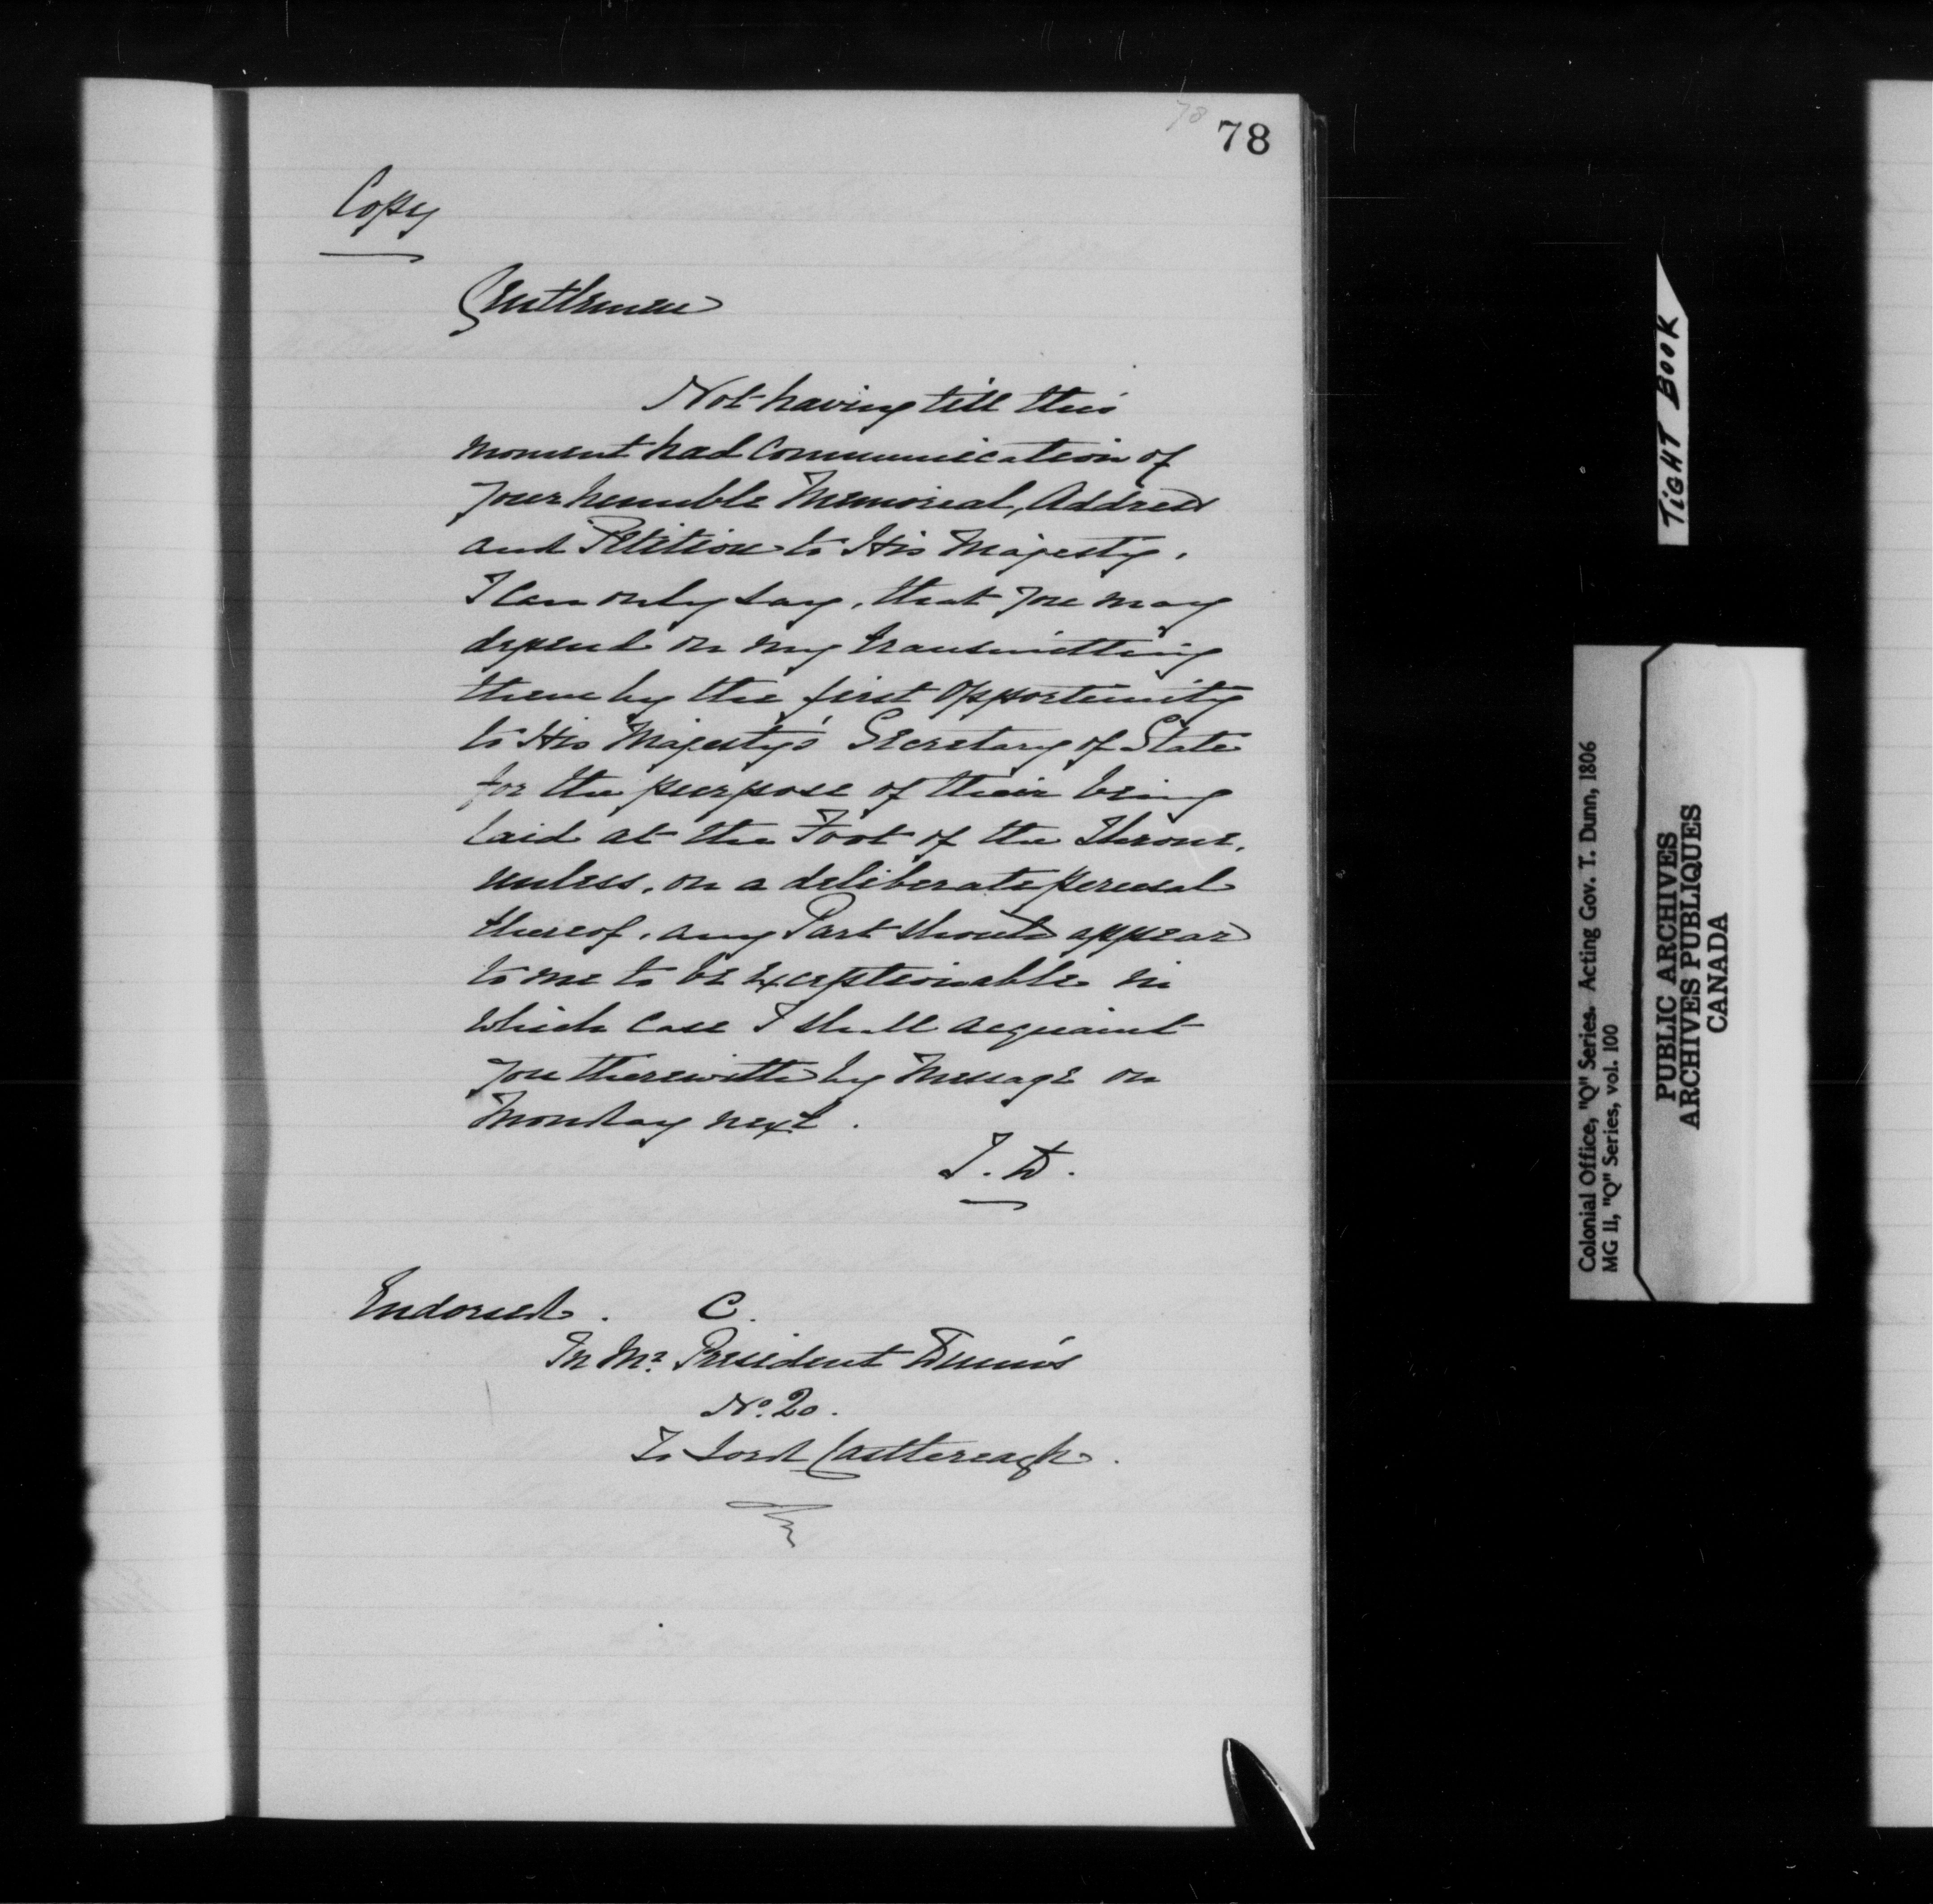 78
78
Copy
Gentlemen
Not having till this
moment had Communication of
your humble Memorial, Address
and Petition to His Majesty,
I can only say, that you may
depend on my transmitting
them by the first opportunity
to His Majesty's Secretary of State
for the purpose of their being
laid at the Foot of the Throne,
unless, on a deliberate perusal
thereof, any Part should appear
to me to be exceptionable in
which case I shall acquaint
you therewith by Message on
Monday next.
T. D.
Endorsed. C.
In Mr. President Dunn's
No. 20.
To Lord Castlereagh.
TIGHT BOOK
Colonial Office, "Q" Series. Acting Gov. T. Dunn, 1806
MG 11, "Q" Series, vol. 100
PUBLIC ARCHIVES
ARCHIVES PUBLIQUES
CANADA